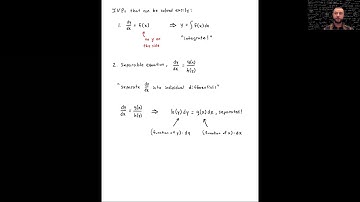 IVPs that can be solved exactly:
1. dy/dx = f(x) ⇒ y = ∫ f(x) dx
no y on this side
"integrate!"
2. Separable equation, dy/dx = g(x)/h(y)
"separate dy/dx into individual differentials"
dy/dx = g(x)/h(y) ⇒ h(y) dy = g(x) dx, separated!
(function of y) · dy (function of x) · dx